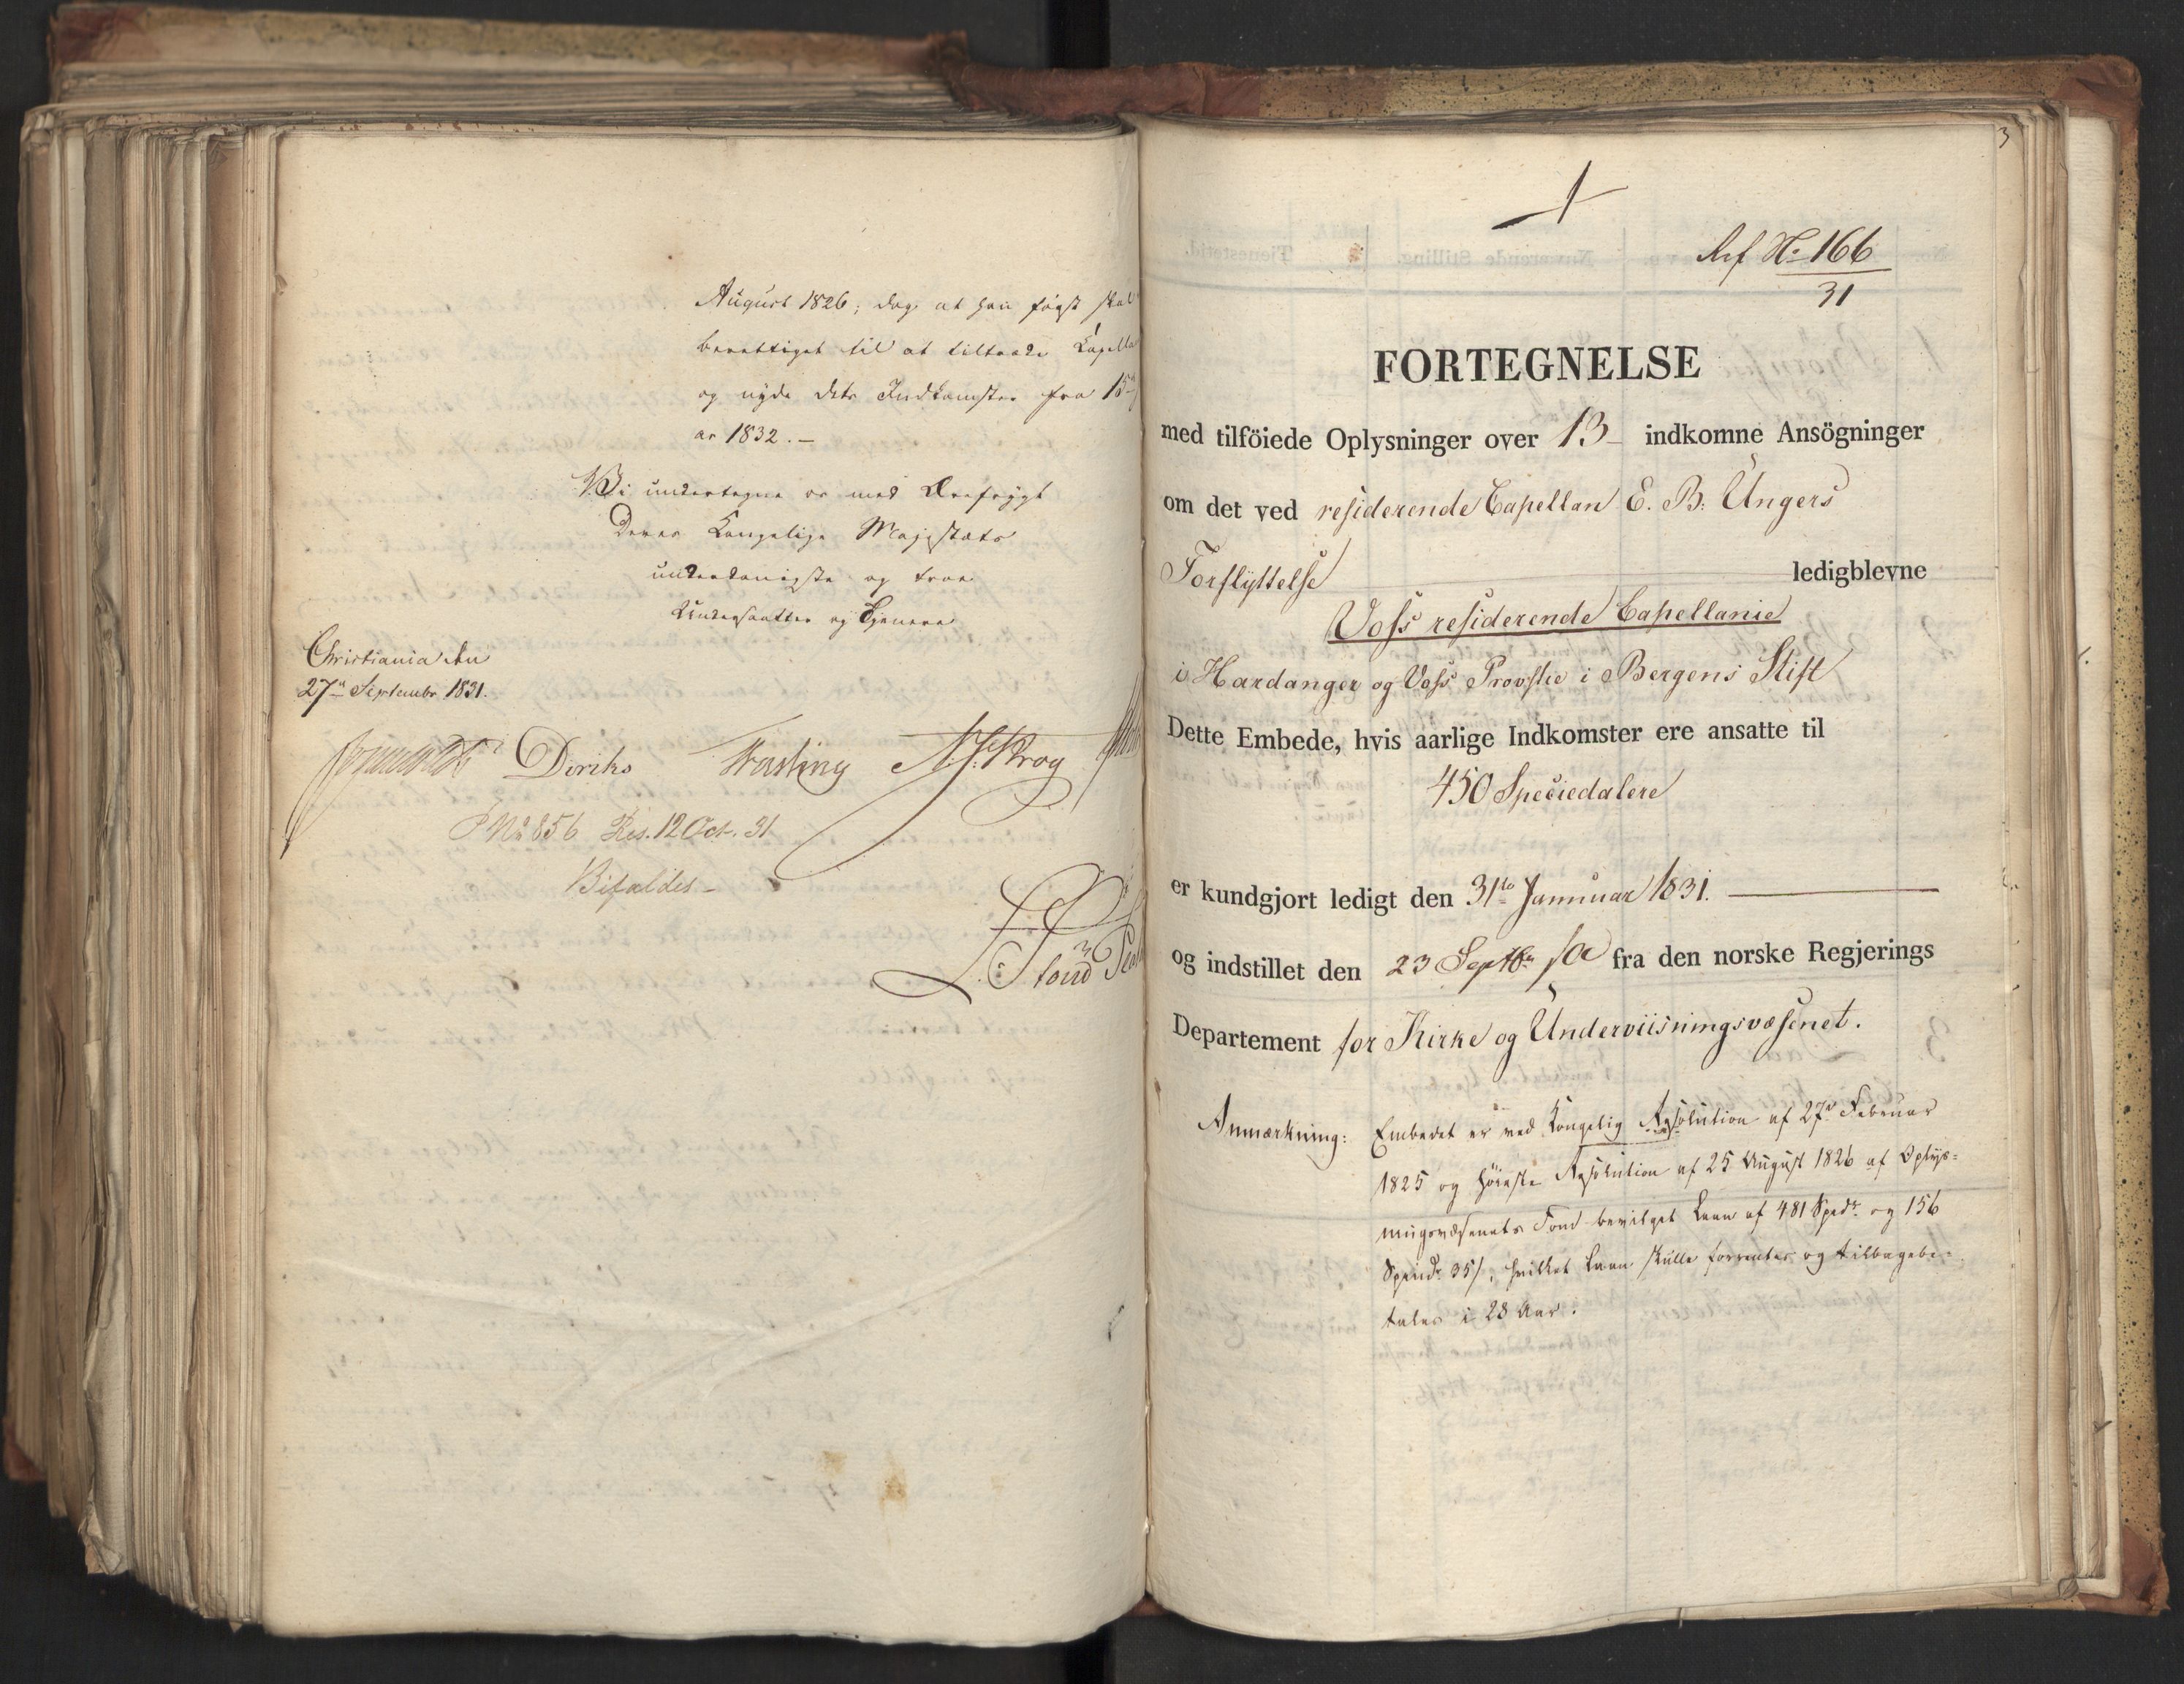 August 1826; dog at han først skal
berettiget til at tiltræde Capella
og nyde dets Indkomster fra 15de
ar 1832. –
Vi undertegne os med Ærefrygt
Deres Kongelige Majestæts
underdanigste og troe
Undersaatter og Tjenere
Christiania den
27de Septembr 1831.
Diriks Fasting N. J. Krog
P No 856 Res. 12 Oct. 31
Bifaldes –
3
Ref No 166
31
FORTEGNELSE
med tilföiede Oplysninger over 13 indkomne Ansögninger
om det ved residerende Capellan E. B. Ungers
Forflyttelse ledigblevne
Voss residerende Capellanie
i Hardanger og Voss Provstie i Bergens Stift
Dette Embede, hvis aarlige Indkomster ere ansatte til
450 Speciedalere
er kundgjort ledigt den 31te Januar 1831.
og indstillet den 23 Septbr fra den norske Regjerings
Departement for Kirke og Underviisningsvæsenet.
Anmærkning: Embedet er ved Kongelig Resolution af 27de Februar
1825 og høieste Resolution af 25 August 1826 af Oplys-
ningsvæsenets Fond bevilget Laan af 481 Spedr og 156
Spedr 35/, hvilket Laan skulle forrentes og tilbagebe-
tales i 28 Aar.